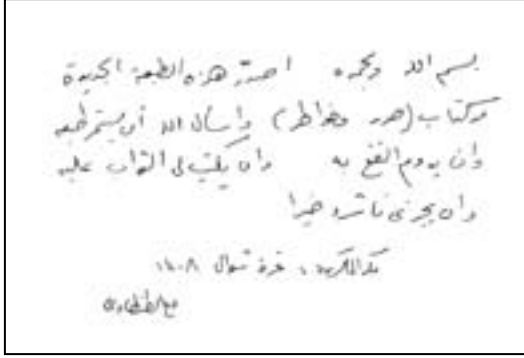 بسم الله وبحمده أصدرت هذه الطبعة الجديدة
من كتاب (صور وخواطر) وأسأل الله أن يستمر طبعه
وأن يدوم النفع به وأن يكتب لي الثواب عليه
وأن يجزي ناشره خيرا
مكة المكرمة ، غرة شوال ١٤٠٨
علي الطنطاوي